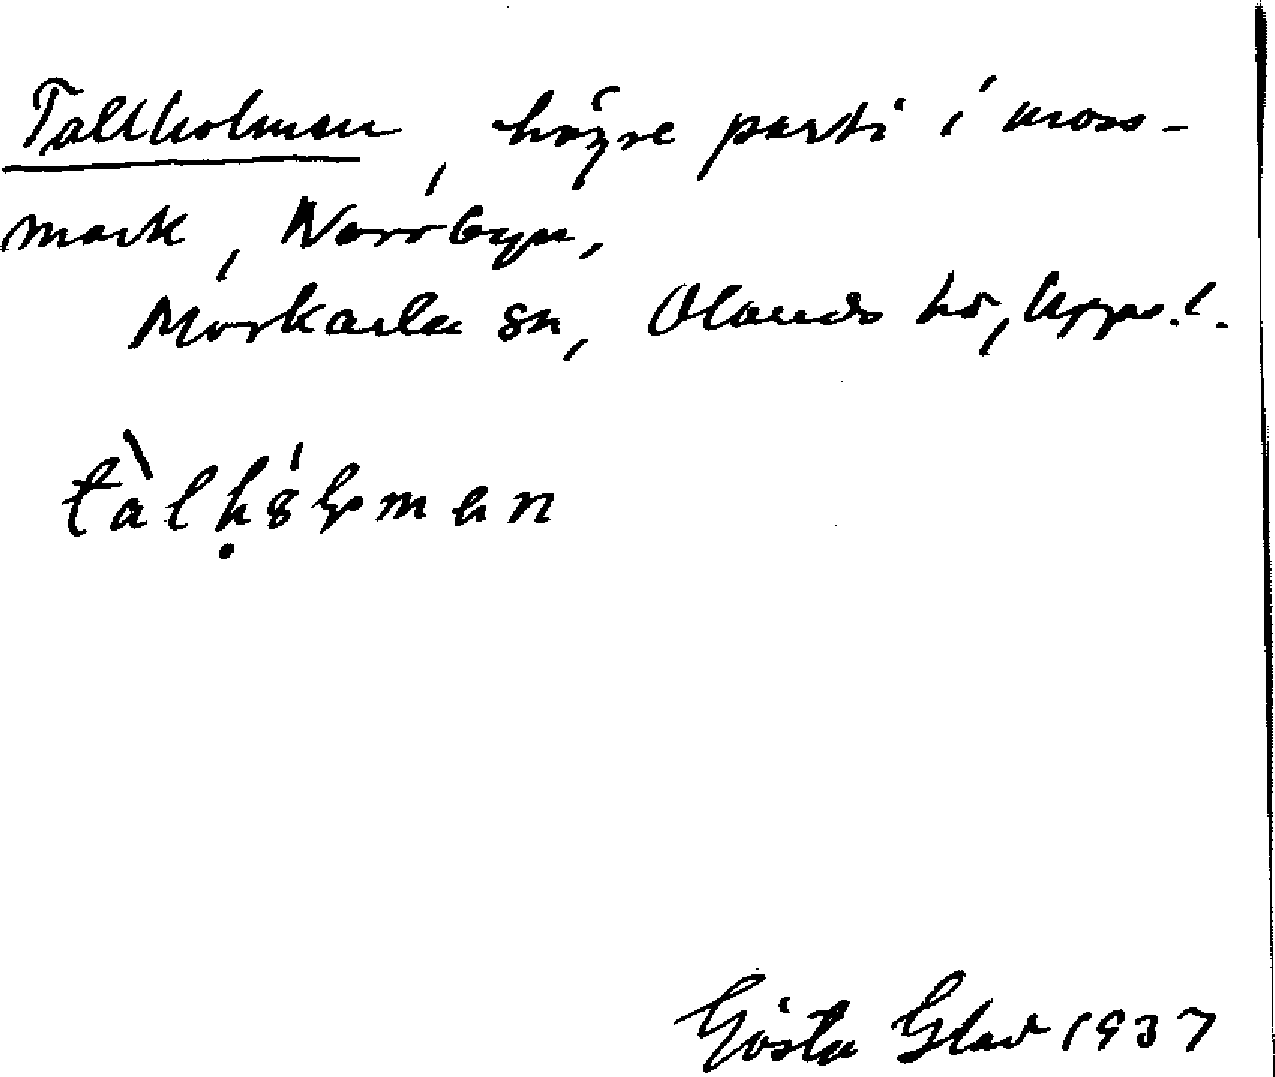 Tallholmen, högre parti i moss-
mark, Norrbyn,
Morkarla sn, Olands hd, Upps. l.
Gösta Glad 1937